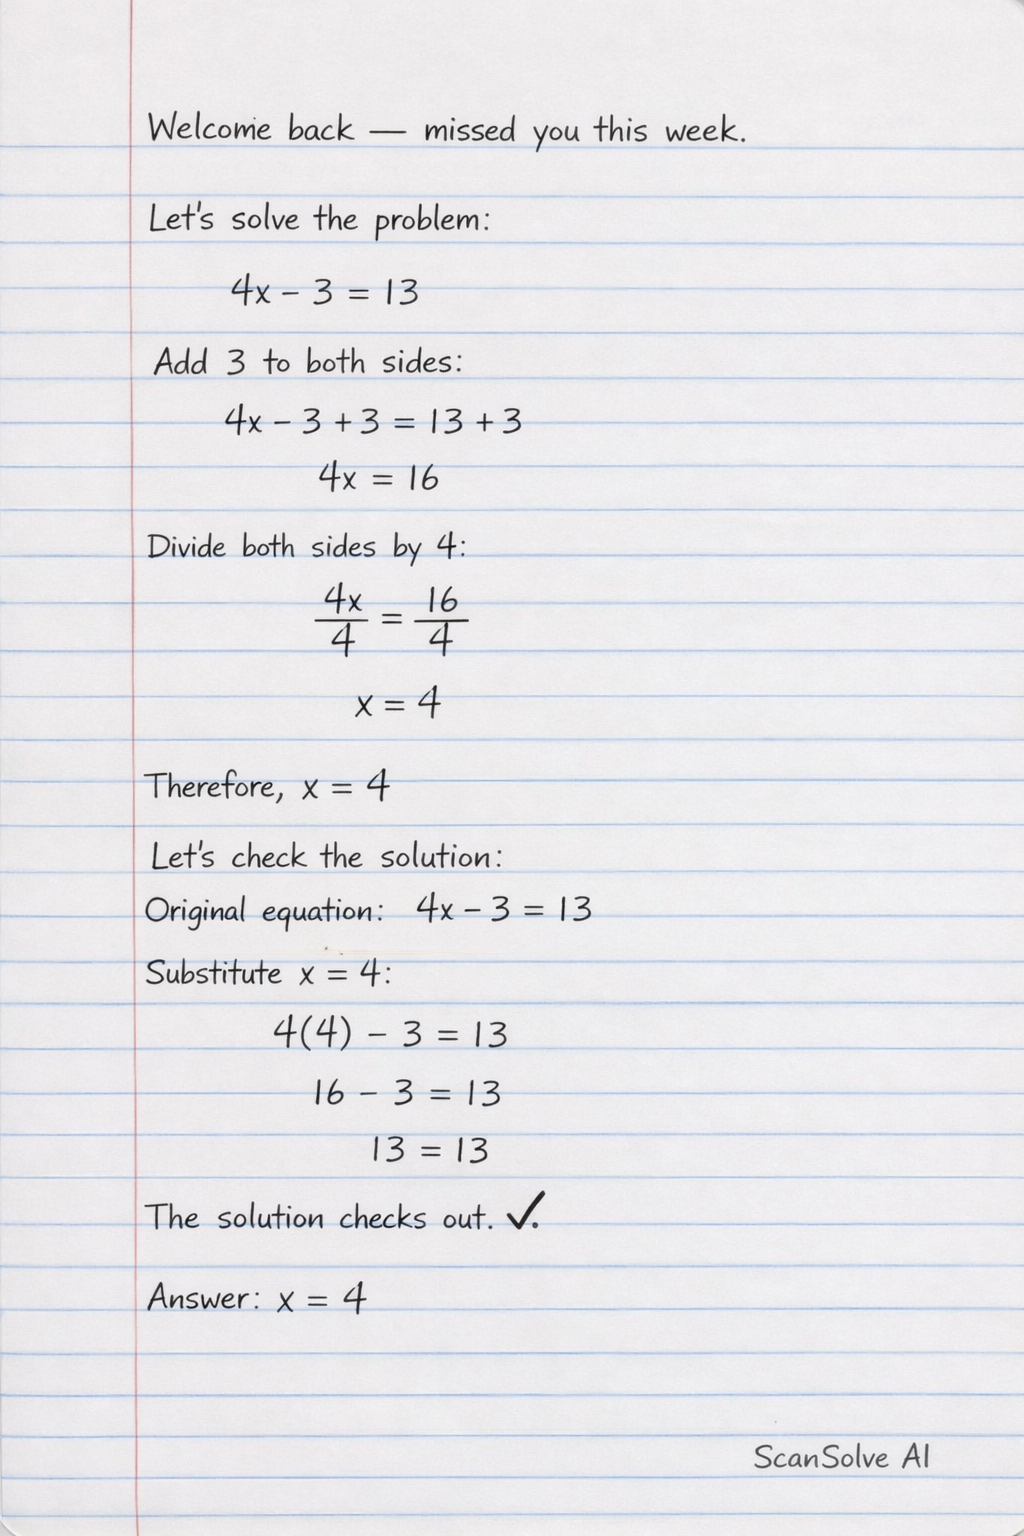 Welcome back — missed you this week.
Let's solve the problem:
4x – 3 = 13
Add 3 to both sides:
4x – 3 + 3 = 13 + 3
4x = 16
Divide both sides by 4:
4x/4 = 16/4
x = 4
Therefore, x = 4
Let's check the solution:
Original equation: 4x – 3 = 13
Substitute x = 4:
4(4) – 3 = 13
16 – 3 = 13
13 = 13
The solution checks out. ✓.
Answer: x = 4
ScanSolve AI